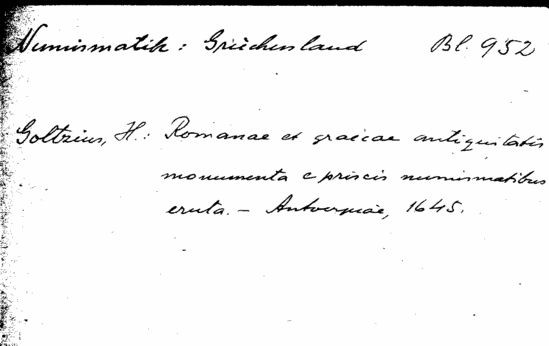 Numismatik: Griechenland Bl. 952
Goltzius, H.: Romanae et graecae antiquitatis
monumenta e priscis numismatibus
eruta. - Antverpiae, 1645.